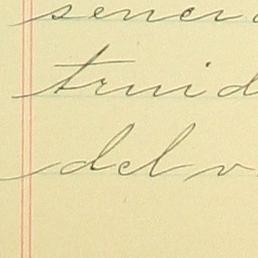 senci
truid
del v